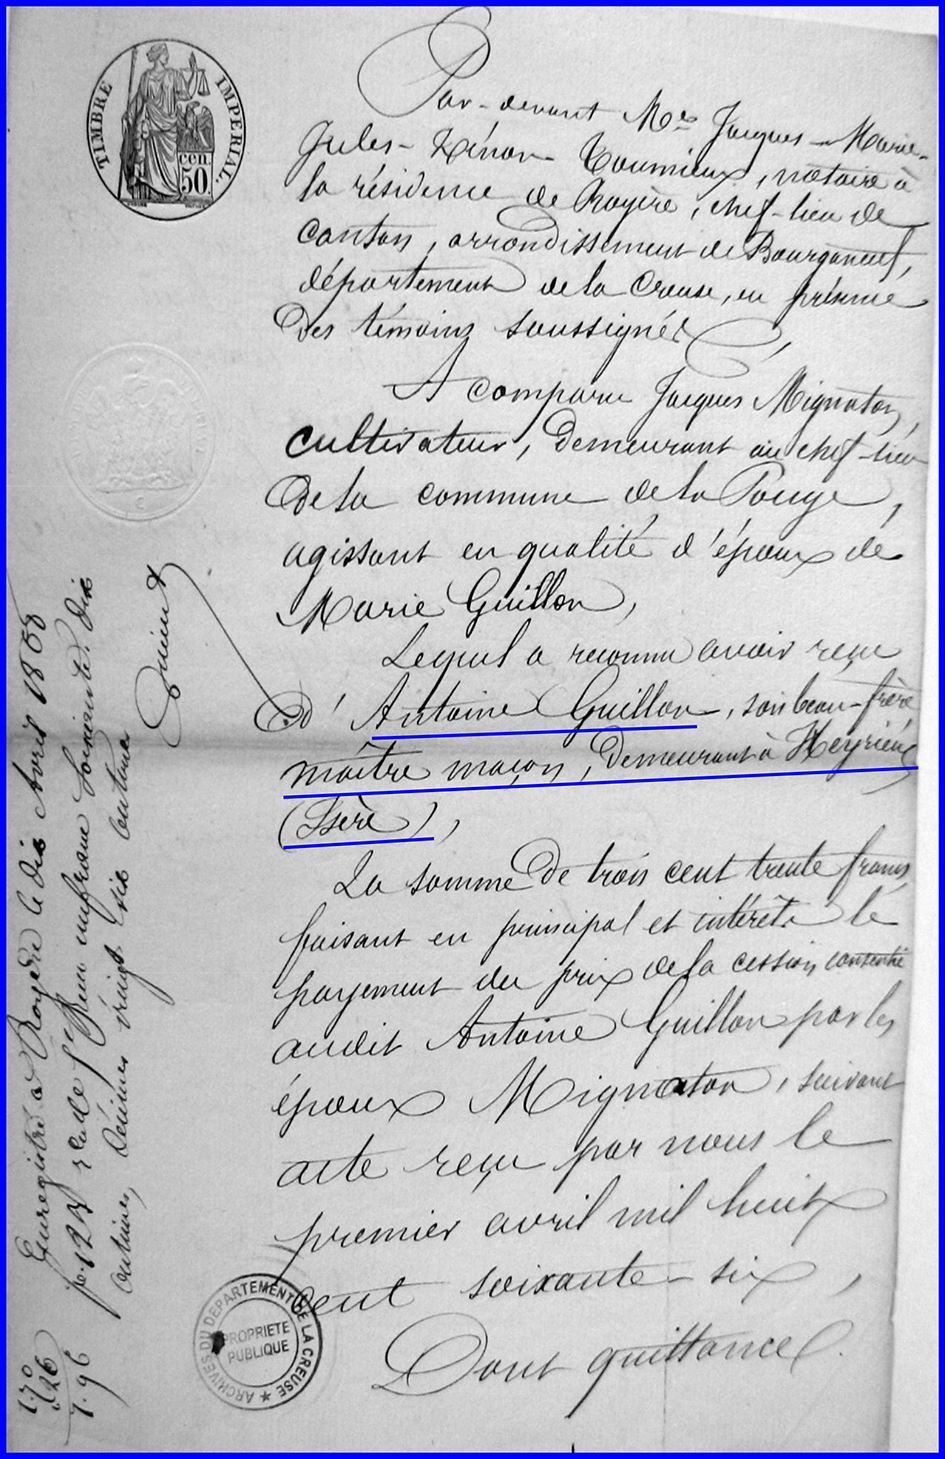 TIMBRE IMPÉRIAL.
cen.
50.
Par-devant Me Jacques-Marie-
Jules-Zénon Toumieux, notaire à
la résidence de Royère, chef-lieu de
canton, arrondissement de Bourganeuf,
département de la Creuse, en présence
des témoins soussignés,
A comparu Jacques Mignaton,
cultivateur, demeurant au chef-lieu
de la commune de la Pouge,
agissant en qualité d'époux de
Marie Guillon,
Lequel a reconnu avoir reçu
d'Antoine Guillon, son beau-frère
maître maçon, demeurant à Heyrieux
(Isère),
La somme de trois cent trente francs,
faisant en principal et intérêts le
payement du prix de la cession consentie
audit Antoine Guillon par les
époux Mignaton, suivant
acte reçu par nous le
premier avril mil huit
cent soixante-six,
Dont quittance.
Enregistré à Royère le dix Avril 1868
fo 123 Reçu un franc soixante dix
centimes, décimes vingt six centimes
1.70
26
1.96
ARCHIVES DU DEPARTEMENT DE LA CREUSE
PROPRIETE
PUBLIQUE